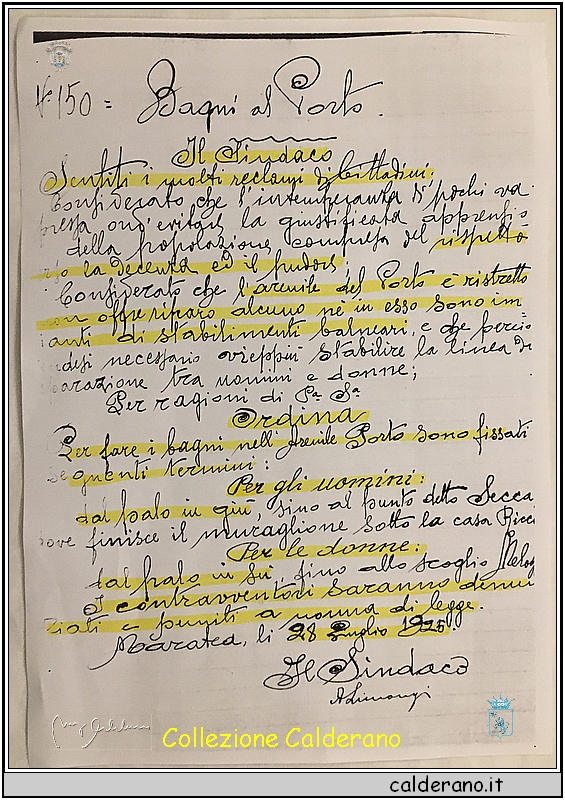 N. 150 = Bagni al Porto.
Il Sindaco
Sentiti i molti reclami di cittadini:
Considerato che l'intemperanza di pochi va
repressa ond'evitare la giustificata apprensio
della popolazione compresa del rispetto
la decenza ed il pudore;
Considerato che l'arenile del Porto è ristretto
non offre riparo alcuno nè in esso sono im
ianti di stabilimenti balneari, e che perciò
desi necessario vieppiù stabilire la linea di
parazione tra uomini e donne;
Per ragioni di Pª Sª
Ordina
Per fare i bagni nell'Arenile Porto sono fissati
seguenti termini:
Per gli uomini:
dal palo in giù, sino al punto detto Secca
ove finisce il muraglione sotto la casa Ricci
Per le donne:
dal palo in su, fino allo scoglio
I contravventori saranno denun
ziati e puniti a norma di legge.
Maratea, li 28 Luglio 1925.
Il Sindaco
A Limongi
Collezione Calderano
calderano.it